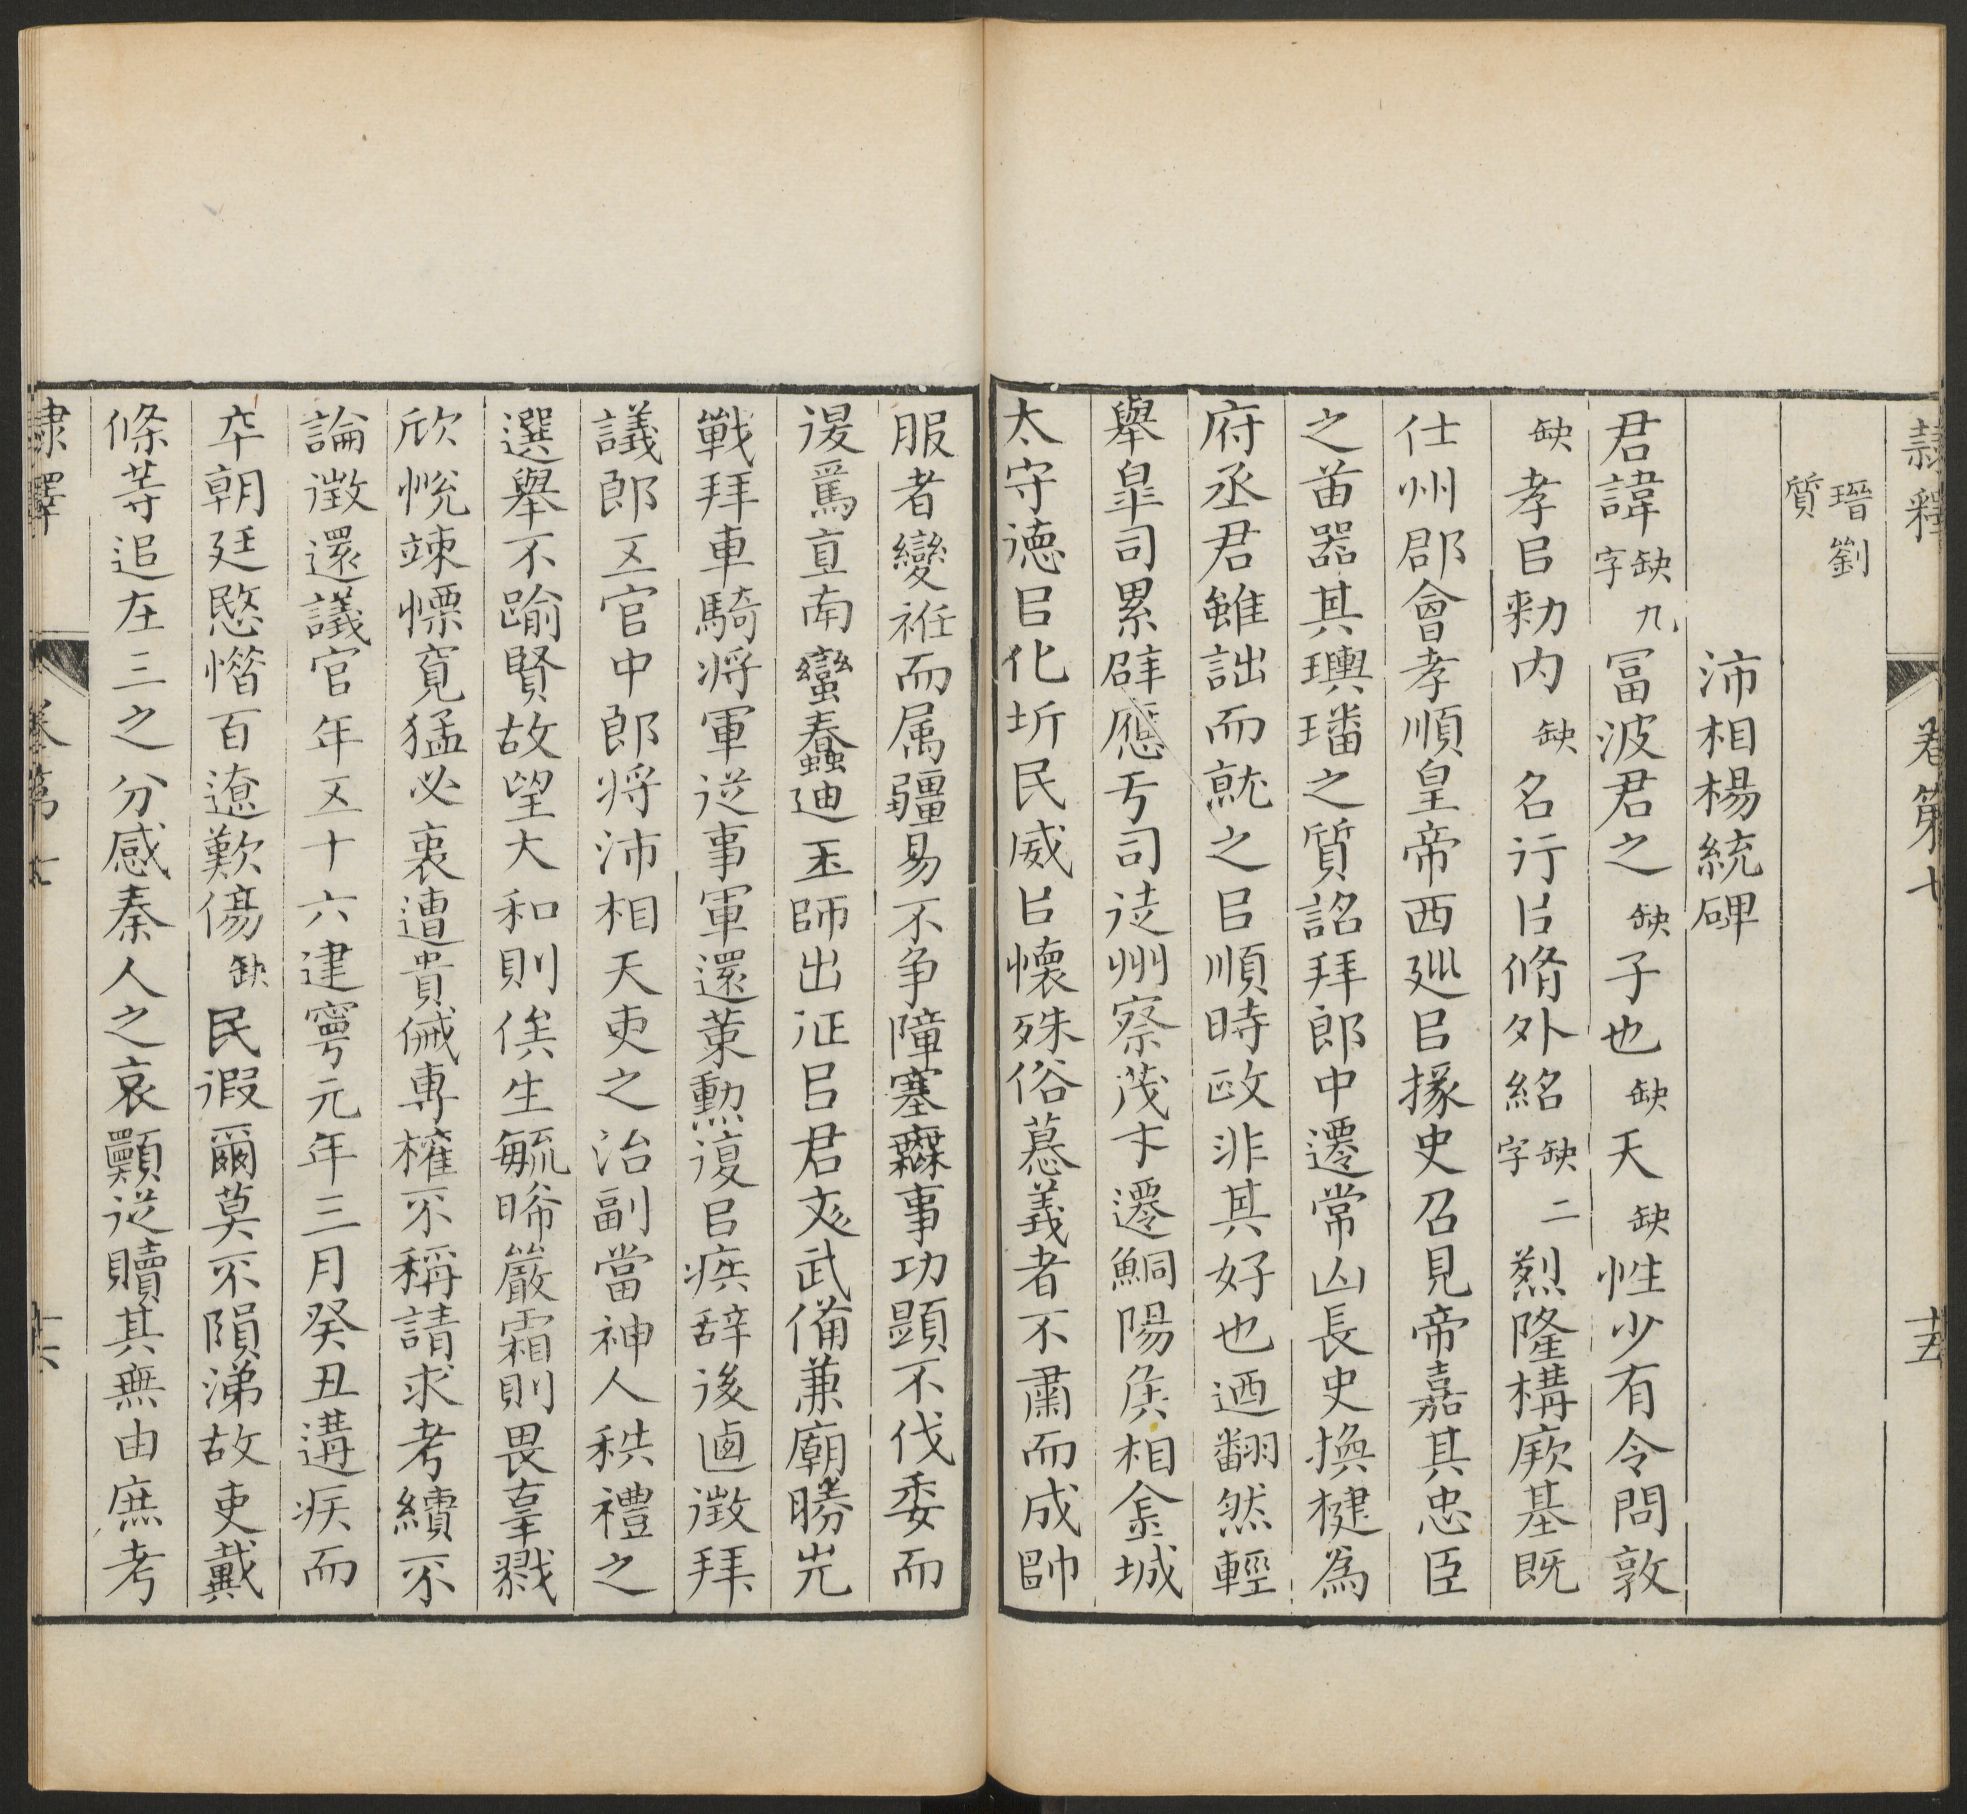 隷釋 卷第七 十五
瑨劉
質
沛相楊統碑
君諱缺九字冨波君之缺子也缺天缺性少有令問敦
缺孝㠯勑内缺名行㠯脩外紹缺二字烈隆構厥基既
仕州郡會孝順皇帝西廵㠯掾史召見帝嘉其忠臣
之苗器其璵璠之質詔拜郎中遷常山長史換楗為
府丞君雖詘而就之㠯順時政非其好也迺翻然輕
舉皐司累辟應于司徒州察茂卞遷鮦陽侯相金城
太守德㠯化圻民威㠯懷殊俗慕義者不肅而成帥
服者變袵而属疆易不争障塞𣠽事功顯不伐委而
復焉直南蠻蠢迪王師出征㠯君文武備兼廟勝光
戰拜車騎将軍従事軍還策勲復㠯疾辞後鹵徴拜
議郎五官中郎将沛相天吏之治副當神人秩禮之
選舉不踰賢故望大和則俟生毓晞嚴霜則畏辜戮
欣悦竦慄寛猛必衷遭貴戚専榷不稱請求考績不
論徴還議官年五十六建寧元年三月癸丑遘疾而
卒朝廷愍惜百遼歎傷缺民徦爾莫不隕涕故吏戴
條等追在三之分感秦人之哀顆従贖其無由庶考
隷釋 卷第七 十六